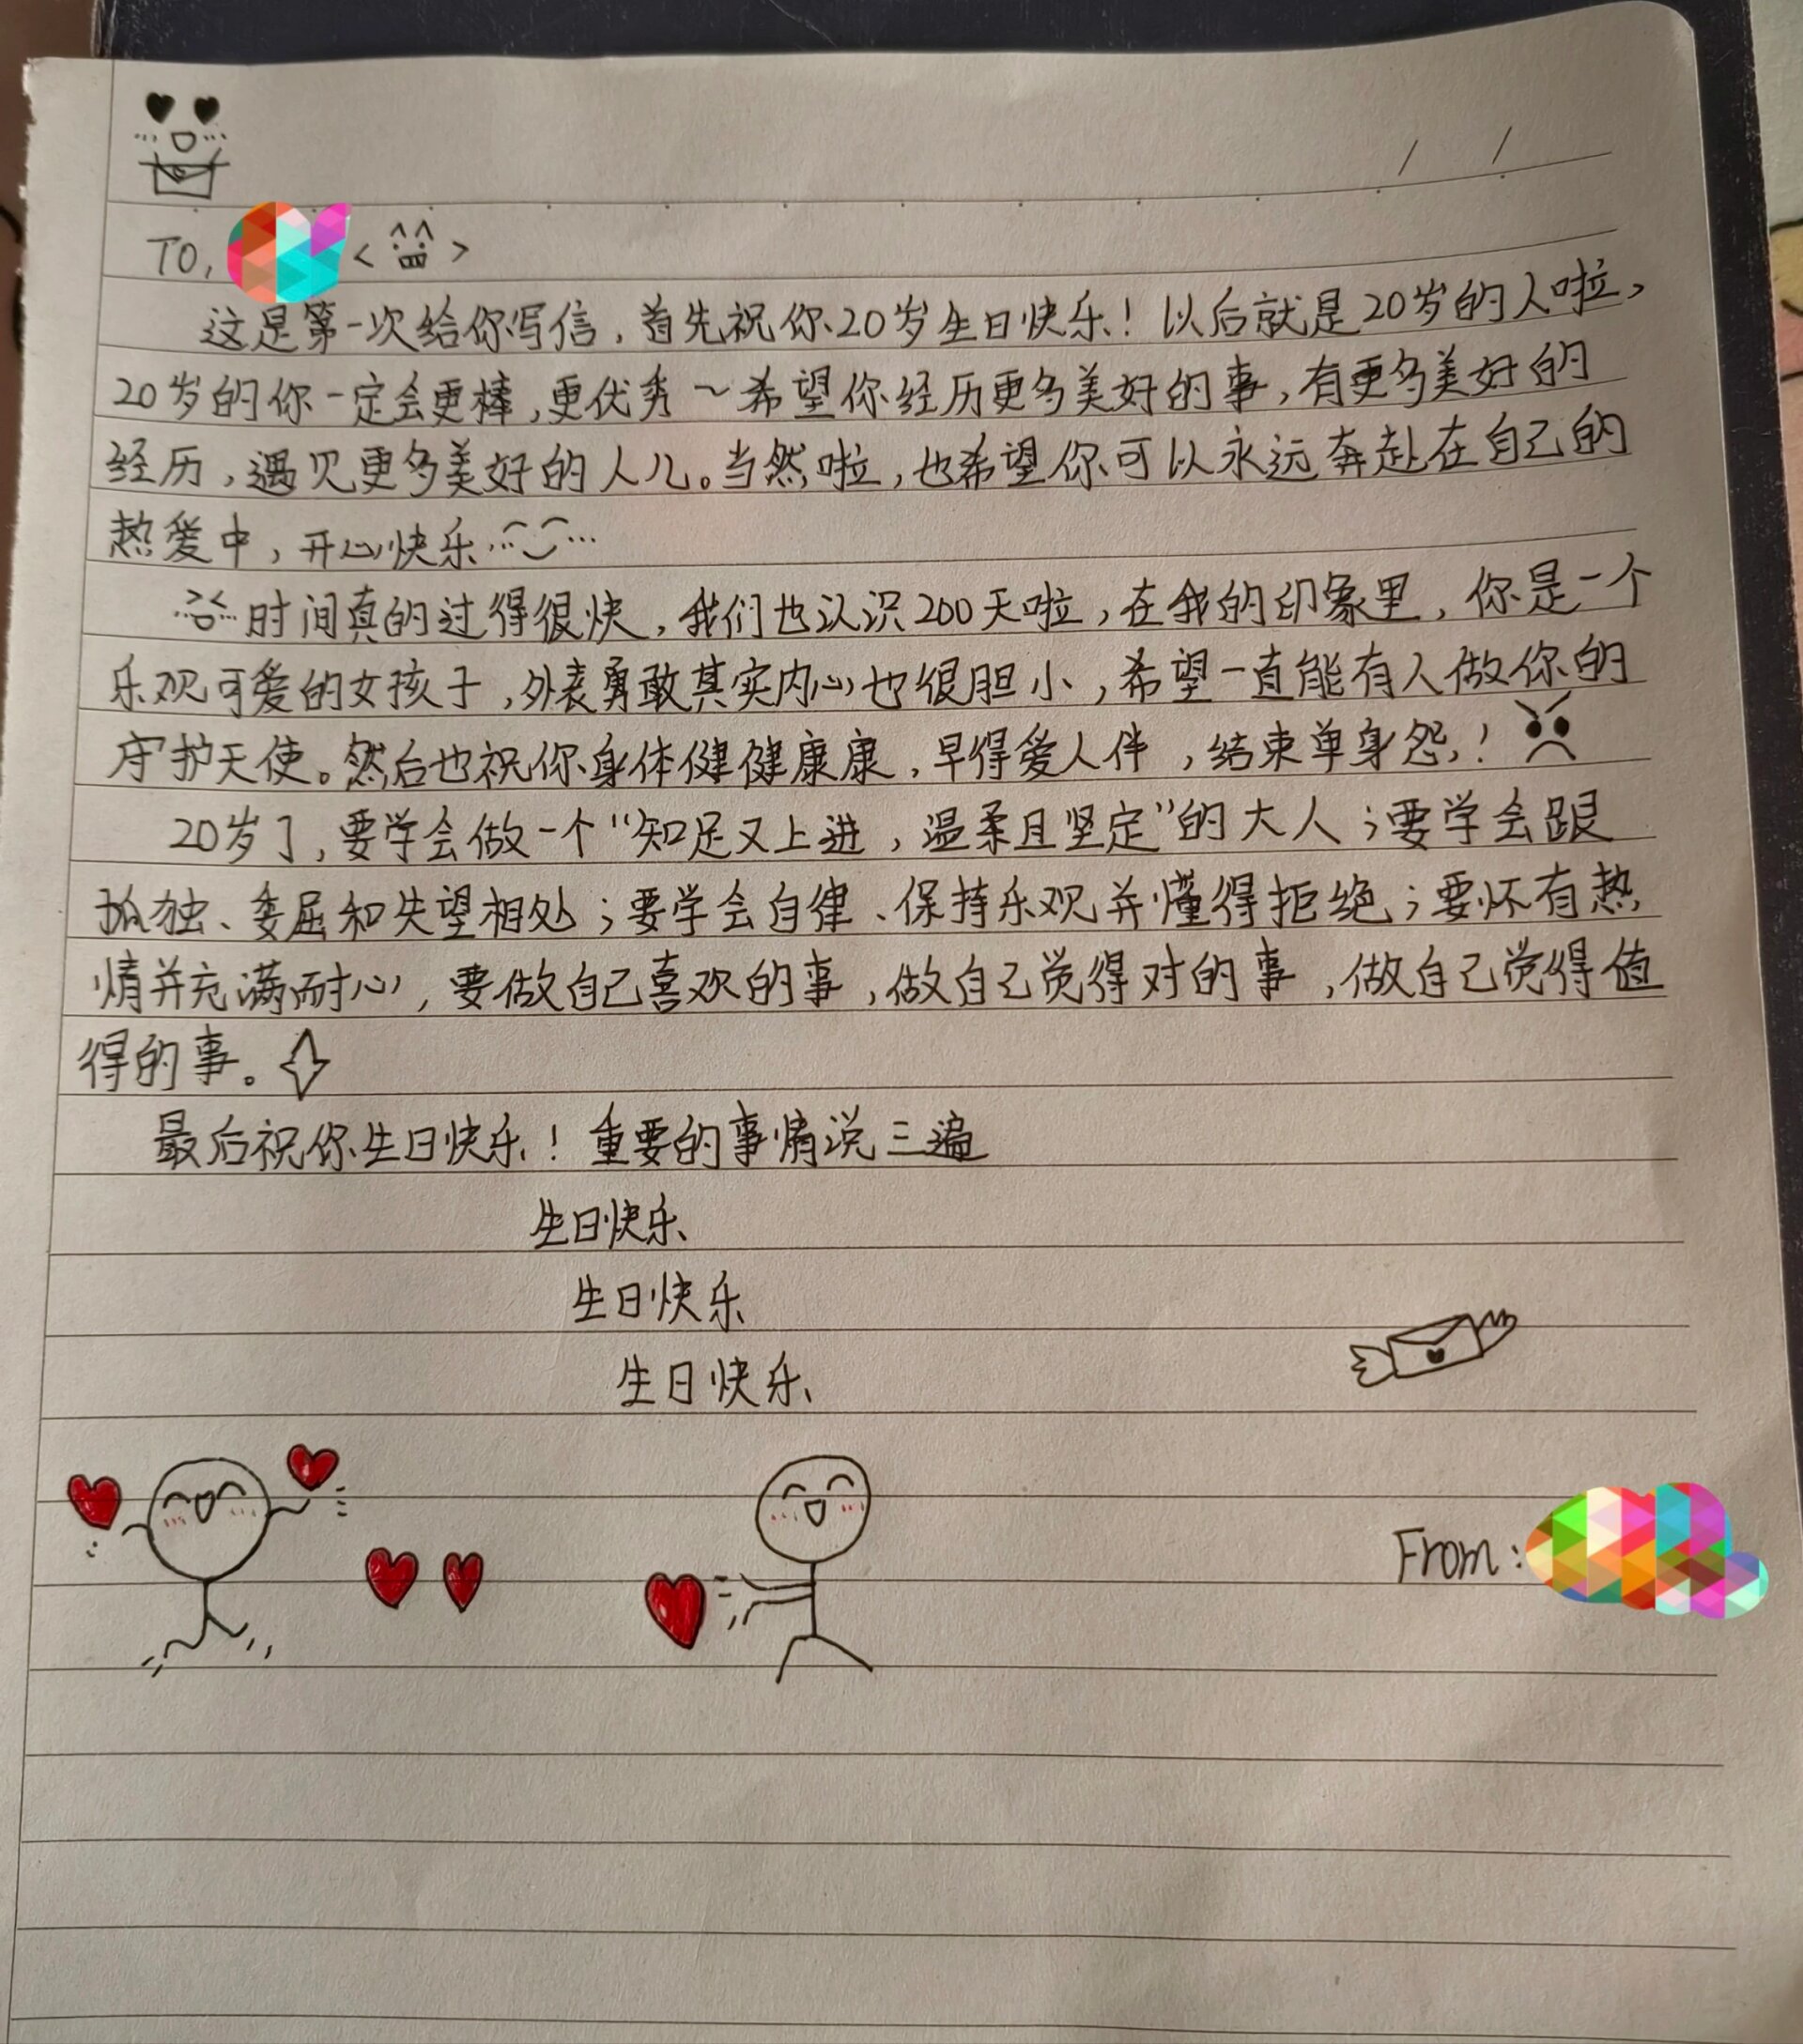 TO,
这是第一次给你写信，首先祝你20岁生日快乐！以后就是20岁的人啦，
20岁的你一定会更棒，更优秀～希望你经历更多美好的事，有更多美好的
经历，遇见更多美好的人儿。当然啦，也希望你可以永远奔赴在自己的
热爱中，开心快乐
时间真的过得很快，我们也认识200天啦，在我的印象里，你是一个
乐观可爱的女孩子，外表勇敢其实内心也很胆小，希望一直能有人做你的
守护天使。然后也祝你身体健健康康，早得爱人伴，结束单身怨！
20岁了，要学会做一个“知足又上进，温柔且坚定”的大人；要学会跟
孤独、委屈和失望相处；要学会自律、保持乐观并懂得拒绝；要怀有热
情并充满耐心，要做自己喜欢的事，做自己觉得对的事，做自己觉得值
得的事。
最后祝你生日快乐！重要的事情说三遍
生日快乐
生日快乐
生日快乐
From：